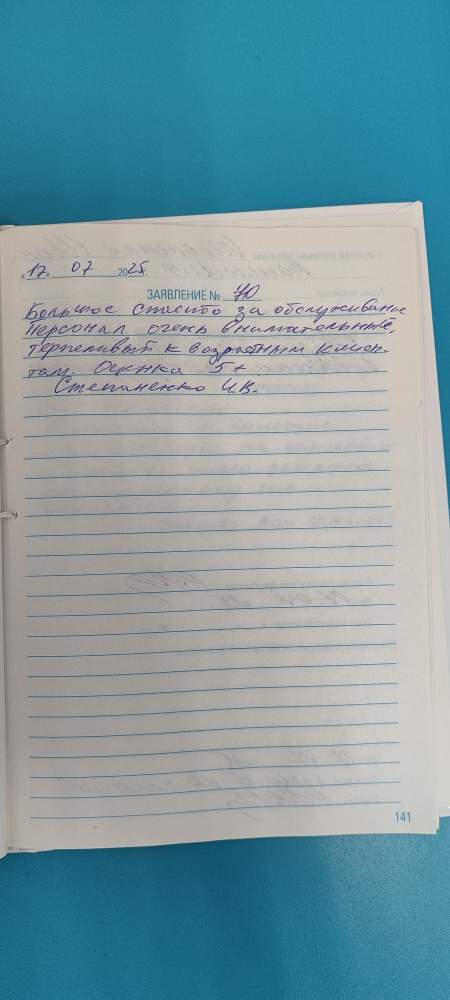 « 17 » 07 2025
ЗАЯВЛЕНИЕ № 70
Большое спасибо за обслуживание
Персонал очень внимательный,
терпеливый к возрастным клиен-
там. Оценка 5+
Степаненко И.В.
141